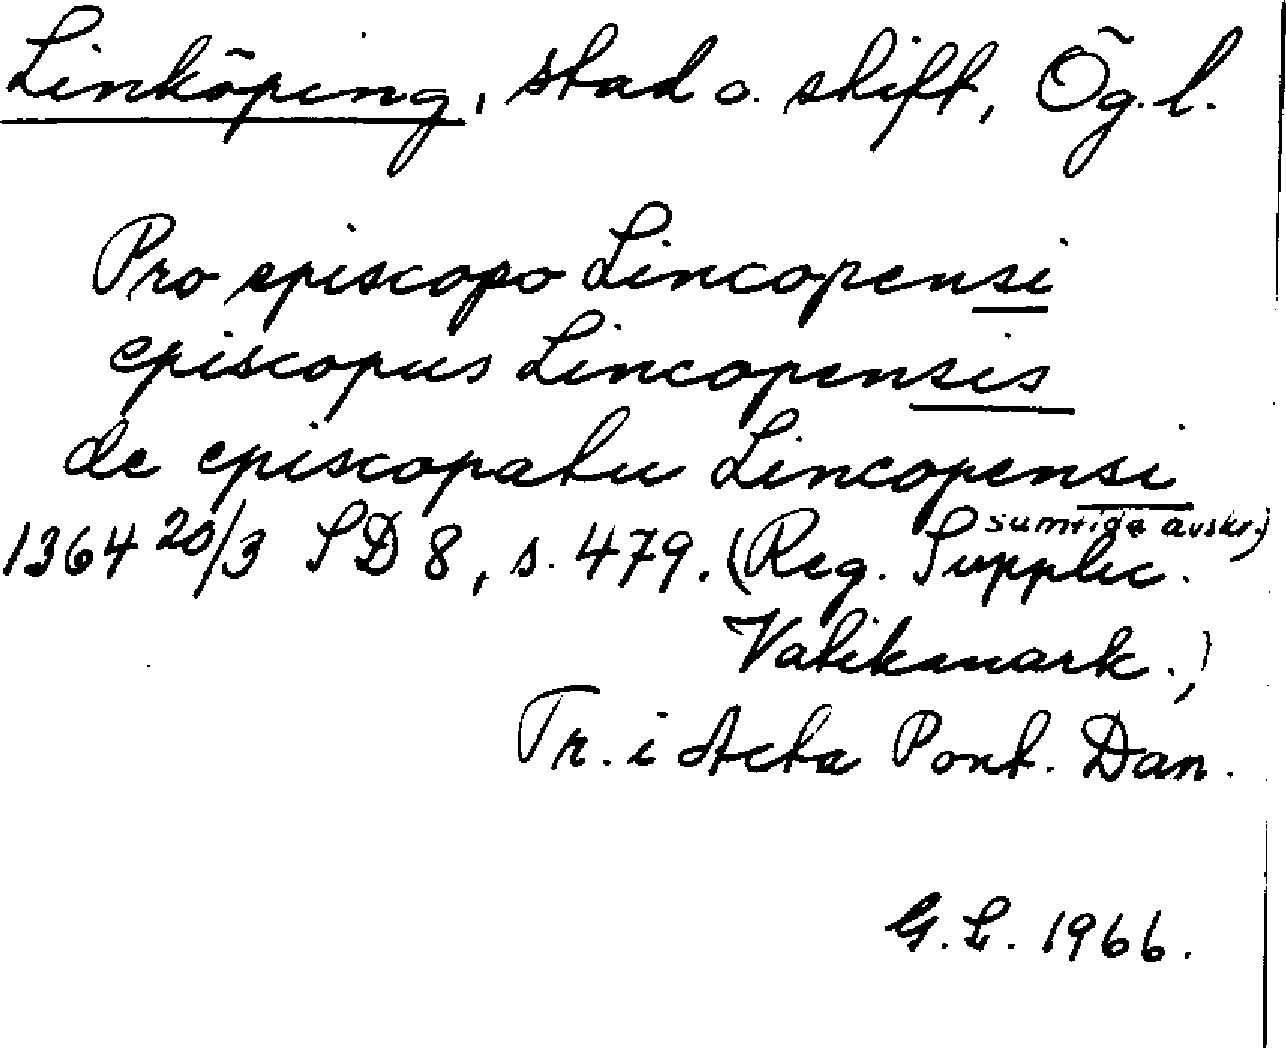 Linköping, stad o. stift, Ög. l.
Pro episcopo Lincopensi
episcopus Lincopensis
de episcopatu Lincopensi
samtida avskr.)
1364 20/3 SD 8, s. 479. (Reg. Supplic.
Vatikanark.,)
Tr. i Acta Pont. Dan.
G. L. 1966.